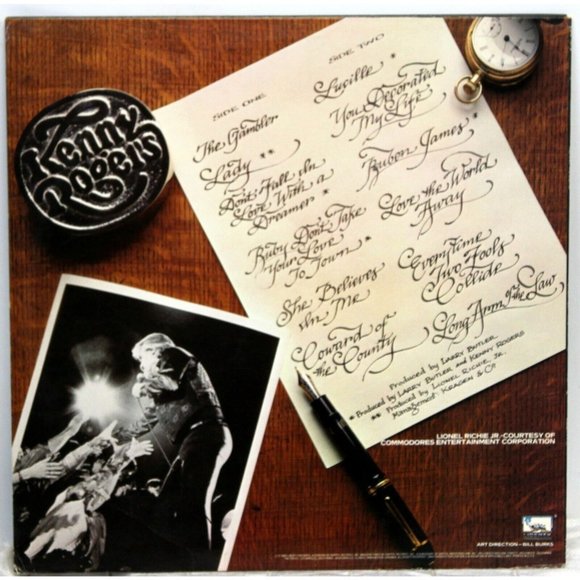 Kenny
Rogers
SIDE ONE
The Gambler
Lady **
Don't Fall In
Love With a
Dreamer *
Ruby Don't Take
Your Love
To Town *
She Believes
In Me
Coward of
the County
SIDE TWO
Lucille *
You Decorated
My Life
Ruben James *
Love the World
Away
Everytime
Two Fools
Collide
Long Arm of the Law
Produced by LARRY BUTLER
* Produced by LARRY BUTLER and KENNY ROGERS
** Produced by LIONEL RICHIE JR.
Management: KRAGEN & CO.
LIONEL RICHIE JR.-COURTESY OF
COMMODORES ENTERTAINMENT CORPORATION
LIBERTY
ART DIRECTION – BILL BURKS